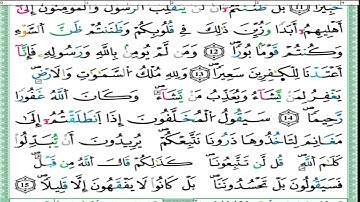 خَبِيرًا ﴿١١﴾ بَلْ ظَنَنتُمْ أَن لَّن يَنقَلِبَ ٱلرَّسُولُ وَٱلْمُؤْمِنُونَ إِلَىٰٓ
أَهْلِيهِمْ أَبَدًا وَزُيِّنَ ذَٰلِكَ فِى قُلُوبِكُمْ وَظَنَنتُمْ ظَنَّ ٱلسَّوْءِ
وَكُنتُمْ قَوْمًۢا بُورًا ﴿١٢﴾ وَمَن لَّمْ يُؤْمِنۢ بِٱللَّهِ وَرَسُولِهِۦ فَإِنَّآ
أَعْتَدْنَا لِلْكَٰفِرِينَ سَعِيرًا ﴿١٣﴾ وَلِلَّهِ مُلْكُ ٱلسَّمَٰوَٰتِ وَٱلْأَرْضِ ۚ
يَغْفِرُ لِمَن يَشَآءُ وَيُعَذِّبُ مَن يَشَآءُ ۚ وَكَانَ ٱللَّهُ غَفُورًا
رَّحِيمًا ﴿١٤﴾ سَيَقُولُ ٱلْمُخَلَّفُونَ إِذَا ٱنطَلَقْتُمْ إِلَىٰ
مَغَانِمَ لِتَأْخُذُوهَا ذَرُونَا نَتَّبِعْكُمْ ۖ يُرِيدُونَ أَن يُبَدِّلُوا۟
كَلَٰمَ ٱللَّهِ ۚ قُل لَّن تَتَّبِعُونَا كَذَٰلِكُمْ قَالَ ٱللَّهُ مِن قَبْلُ ۖ
فَسَيَقُولُونَ بَلْ تَحْسُدُونَنَا ۚ بَلْ كَانُوا۟ لَا يَفْقَهُونَ إِلَّا قَلِيلًا ﴿١٥﴾